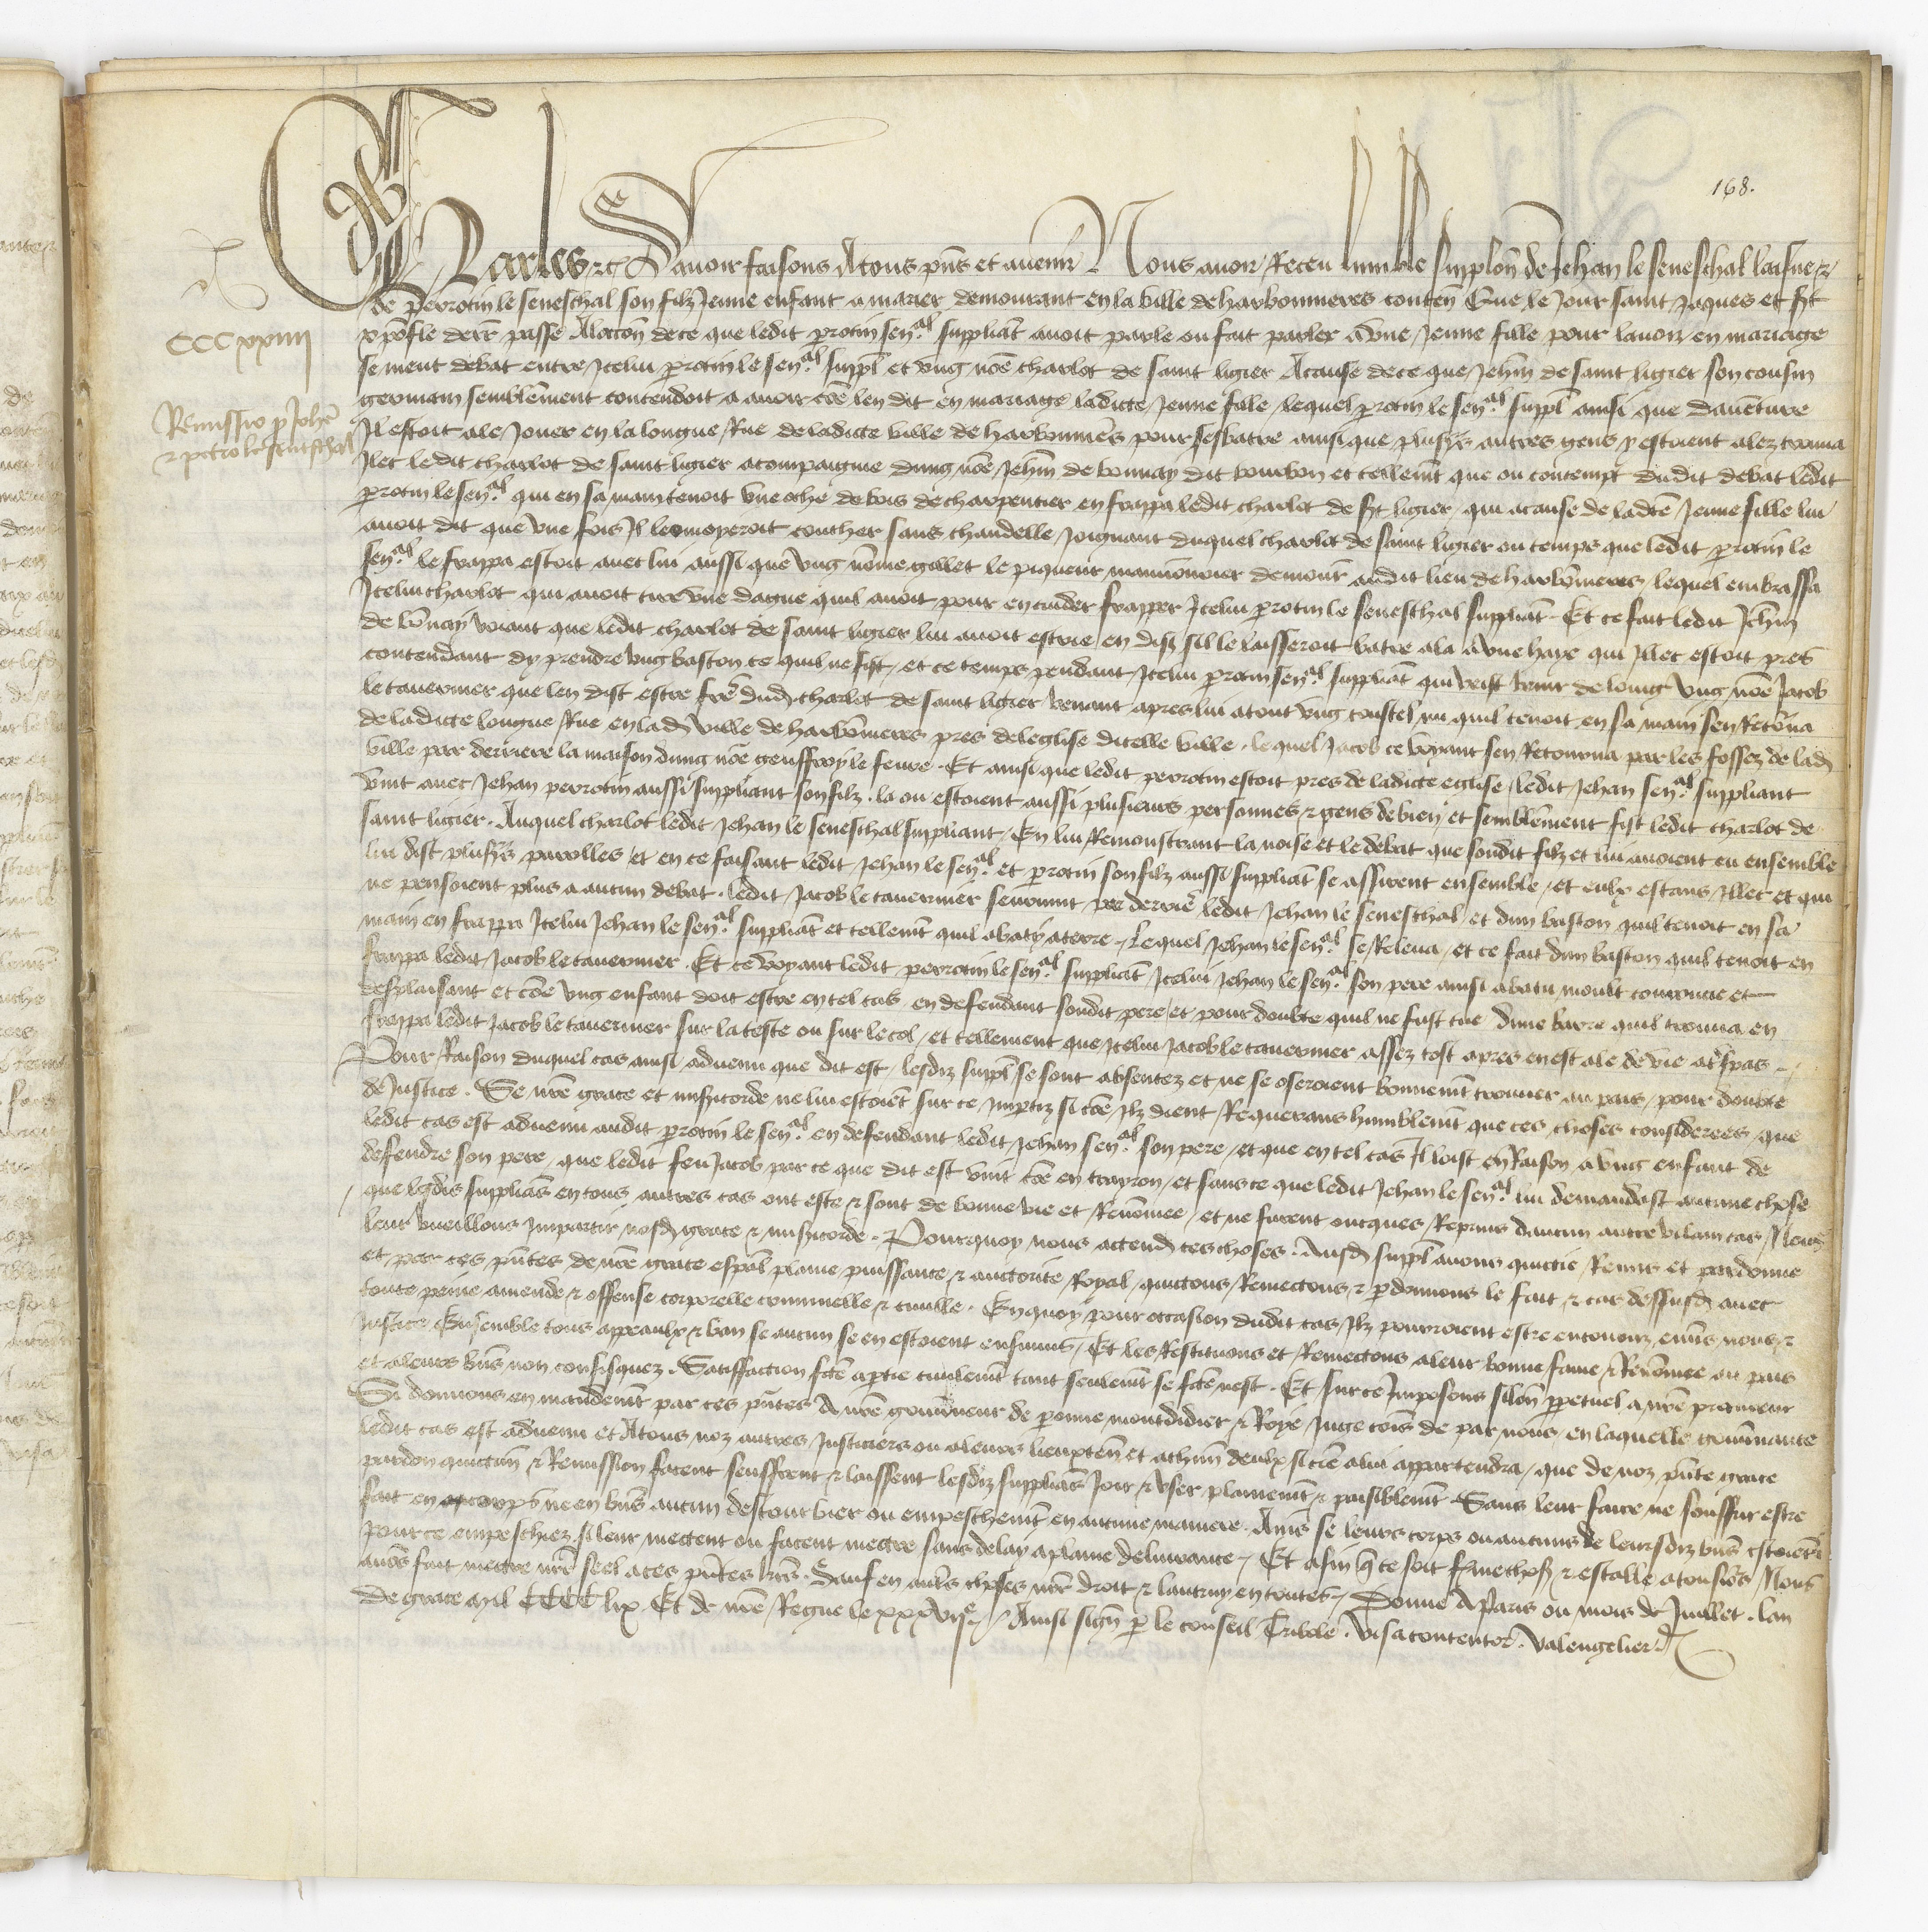 168.
CCCxxiiii
Remissio p Johe
& petro le seneschal
Charles &c Savoir faisons A tous pns et avenir Nous avoir receu lumble supplon de Jehan le seneschal laisne &
de perrotin le seneschal son filz Jeune enfant a marier demourant en la ville de harbonnieres conten Que le Jour saint Jaques et st
xpofle derr passe A loccon de ce que ledit protin sen.al suppliat avoit parle ou fait parler a une Jeune fille pour lavoir en mariage
se ment debat entre Icelui protin le sen.al suppl et ung nōe charlot de saint ligier A cause de ce que Jehn de saint ligier son cousin
germain semblement contendoit a avoir cōe len dit en mariage ladicte Jeune fille lequel protin le sen.al suppl ainsi que daventure
Il estoit ale Jouer en la longue Rue de ladicte ville de harbonnies pour sesbatre ainsi que plusrs autres gens y estoient alez trouva
Ilec ledit charlot de saint ligier acompaigne dung nōe Jehn de bonnay dit bourbon et tellemt que ou contempt dudit debat ledit
protin le sen.al qui en sa main tenoit une ache de bois de charpentier en frappa ledit charlot de st ligier qui a cause de ladte Jeune fille lui
avoit dit que une fois Il lenvoyeroit coucher sans chandelle Joignant duquel charlot de saint ligier ou temps que ledit protin le
sen.al le frappa estoit avec lui aussi que ung nomme galet le piqueur manouvrier demour audit lieu de harbonieres lequel embrassa
Icelui charlot qui avoit tire une dague quil avoit pour en cuider frapper Icelui protin le seneschal suppliāt Et ce fait ledit Jehn
de bonnay voiant que ledit charlot de saint ligier lui avoit escrie en dist sil le laisseroit batre ala a une haye qui Illec estoit pres
contendant dy prendre ung baston ce quil ne fist et ce temps pendant Icelui protin sen.al suppliāt qui veist venir de loing ung nōe Jacob
le tavernier que len dist estre frē dud charlot de saint ligier venant apres lui atout ung coustel nu quil tenoit en sa main sen Retorna
de ladicte longue Rue en lad ville de harbonieres pres de leglise dicelle ville lequel Jacob ce voyant sen Retourna par les fossez de lad
ville par derriere la maison dung nōe geuffroy le fevre Et ainsi que ledit perrotin estoit pres de ladicte eglise ledit Jehan sen.al suppliant
vint avec Jehan perrotin aussi suppliant son filz la ou estoient aussi plusieurs personnes & gens de bien et semblement fist ledit charlot de
saint ligier Auquel charlot ledit Jehan le seneschal suppliant En lui Remonstrant la noise et le debat que sondit filz et lui avoient eu ensemble
lui dist plusrs parolles et en ce faisant ledit Jehan le sen.al et protin son filz aussi suppliāt se assirent ensemble et eulx estans Illec et qui
ne pensoient plus a aucun debat ledit Jacob le tavernier seurvint par derriē ledit Jehan le seneschal et dun baston quil tenoit en sa
main en frappa Icelui Jehan le sen.al suppliāt et tellemt quil abaty a terre Lequel Jehan le sen.al se Releva et ce fait dun baston quil tenoit en
frappa ledit Jacob le tavernier Et ce voyant ledit perrotin le sen.al suppliāt Icelui Jehan le sen.al son pere ainsi abatu moult courrouce et
desplaisant et cōe ung enfant doit estre en tel cas en defendant sondit pere et pour doubte quil ne fust tue dune barre quil trouva en
frappa ledit Jacob le tavernier sur la teste ou sur le col et tellement que Icelui Jacob le tavernier assez tost apres en est ale de vie a trspas
Pour Raison duquel cas ainsi advenu que dit est lesdiz suppl se sont absentez et ne se oseroient bonnemt trouver au pais pour doubte
de Justice Se nrē grace et misericorde ne lui estoiet sur ce Impartiz si cōe Ilz dient Requerans humblemt que ces choses considerees que
ledit cas est advenu audit protin le sen.al en defendant ledit Jehan sen.al son pere et que en tel cas Il loist en Raison a ung enfant de
defendre son pere que ledit feu Jacob par ce que dit est vint cōe en trayson et sans ce que ledit Jehan le sen.al lui demandast aucune chose
que lesdis suppliās en tous autres cas ont este & sont de bonne vie et Renōmee et ne furent oncques Reprins daucun autre vilain cas Nous
leur vueillons Impartir nosd grace & misericorde Pourquoy nous attend ces choses Ausd suppl avons quictie Remis et pardonne
et par ces pntes de nrē grace espal plaine puissance & auctorite Royal quictons Remectons & pdonnons le fait & cas dessusd avec
toute peine amende & offense corporelle criminelle & civille En quoy pour occasion dudit cas Ilz pourroient estre encouruz envs nous &
Justice Ensemble tous appeaulx & ban se aucun se en estoient ensuivis Et les Restituons et Remectons a leur bonne fame & Renōmee ou pais
et a leurs bns non confisquez Satisfaction fcte a ptie civilemt tant seulemt se fcte nest Et sur ce Imposons silen ppetuel a nrē procureur
Si donnons en mandemt par ces pntes A nrē gouvneur de pōnne montdidier & Roye Juge cōis de par nous en laquelle gouvnance
ledit cas est advenu et A tous noz autres Justiciers ou a leurs lieuxten et a chun deulx si cōe a lui appartendra que de noz pnte grace
pardon quictan & Remission facent seuffrent & laissent lesdiz suppliās Joir & user plainemt & paisiblemt Sans leur faire ne souffrir estre
fait en corps ne en bns aucun destourbier ou empeschemt en aucune maniere Aincs se leurs corps ou aucuns de leursdiz bns estoient
pour ce empeschiez si leur mectent ou facent mectre sans delay a plaine delivrance Et afin q ce soit ferme chose & estable a tousiors Nous
avons fait mectre nrē seel a ces pntes lres Sauf en autrs choses nrē droit & lautruy en toutes Donne A paris ou mois de Juillet lan
de grace mil CCCC lix Et de nrē Regne le xxxviie Ainsi sign p le conseil Tribole Visa contentor Valengelier